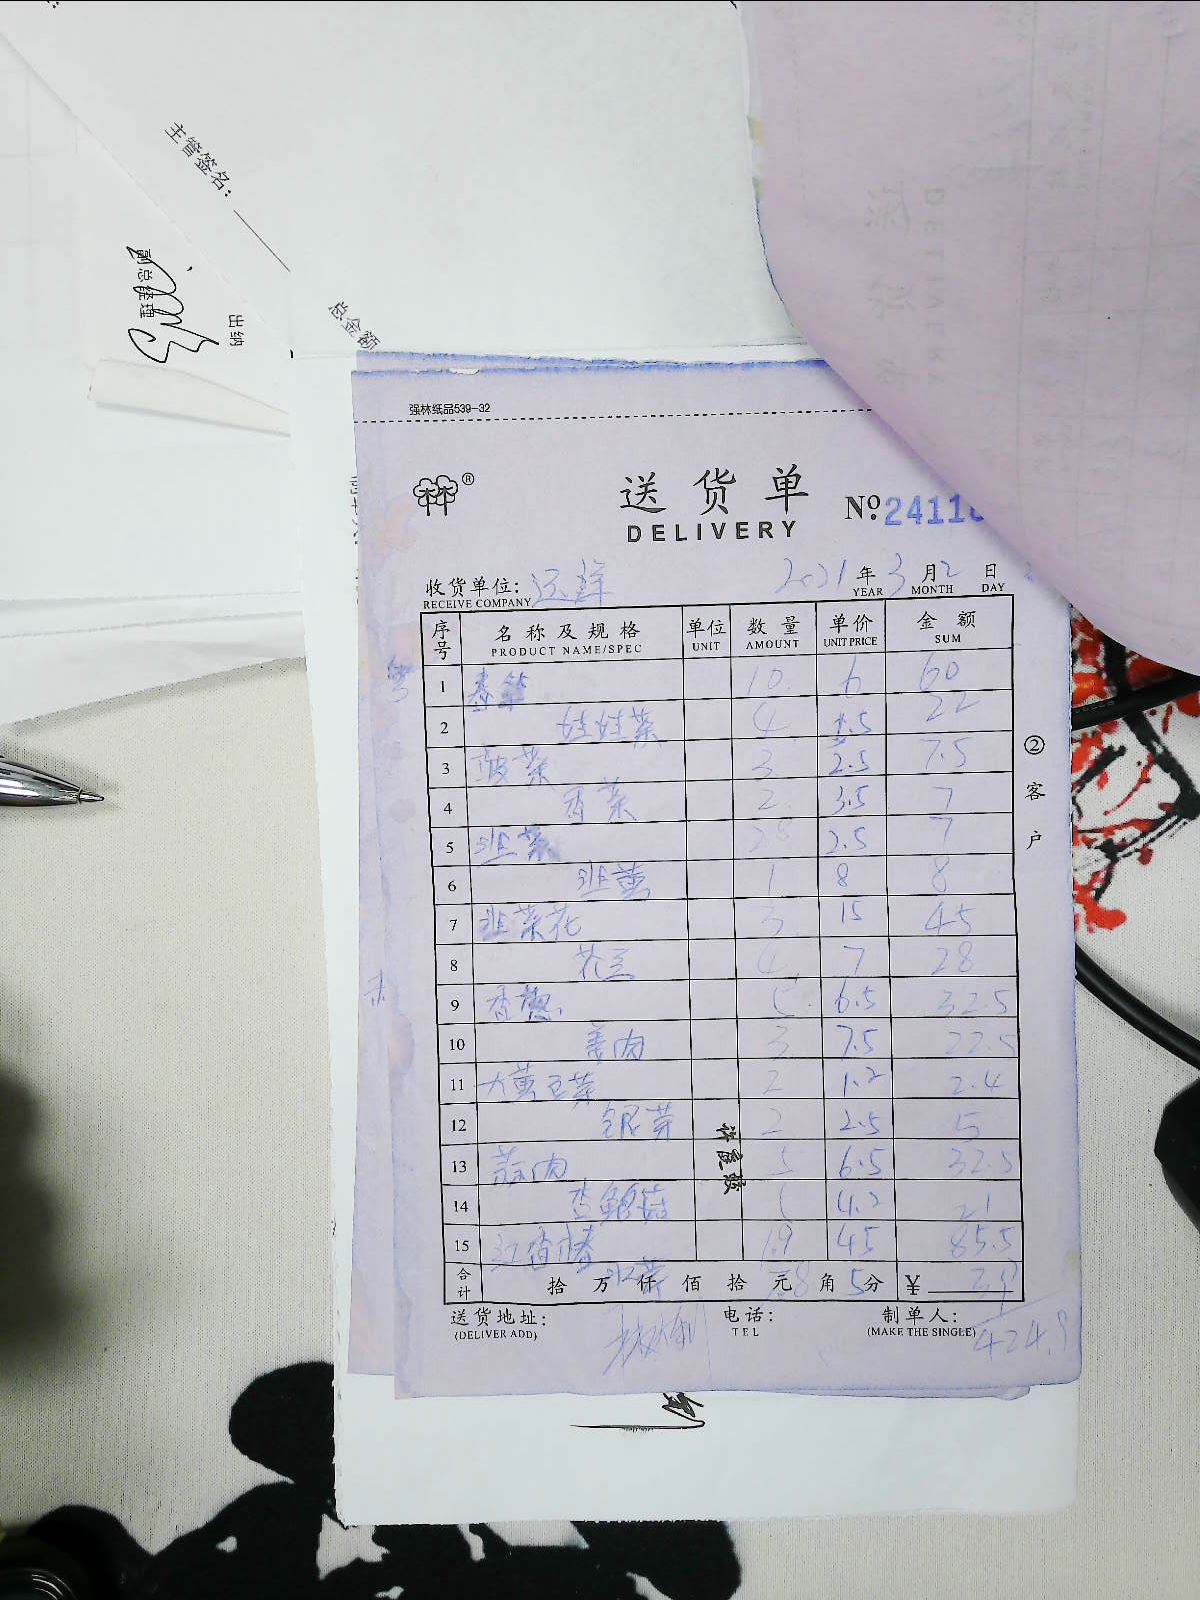 主管签名：
副总经理
出纳
总金额
强林纸品539-32
林®
送货单
DELIVERY
№ 24110
收货单位：
RECEIVE COMPANY
2021年3月2日
YEAR MONTH DAY
序号 名称及规格 单位 数量 单价 金额
PRODUCT NAME/SPEC UNIT AMOUNT UNIT PRICE SUM
1 春笋 10 6 60
2 娃娃菜 4 5.5 22
3 菠菜 3 2.5 7.5
4 香菜 2 3.5 7
5 韭菜 28 2.5 7
6 韭黄 1 8 8
7 韭菜花 3 15 45
8 芥兰 4 7 28
9 香葱 5 6.5 32.5
10 姜肉 3 7.5 22.5
11 大黄豆芽 2 1.2 2.4
12 银芽 2 2.5 5
13 蒜肉 5 6.5 32.5
14 杏鲍菇 5 4.2 21
15 红香椿 1.9 45 85.5
合计 拾 万 仟 佰 拾 元 8 角 5 分 ￥ 39
424.9
送货地址： 电话： 制单人：
(DELIVER ADD) TEL (MAKE THE SINGLE)
②客户